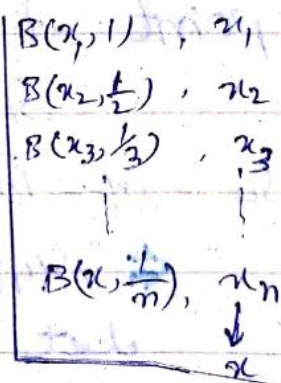 B(x₁, 1) , x₁
B(x₂, 1/2) , x₂
B(x₃, 1/3) , x₃
B(x, 1/n) , xₙ
↓
x